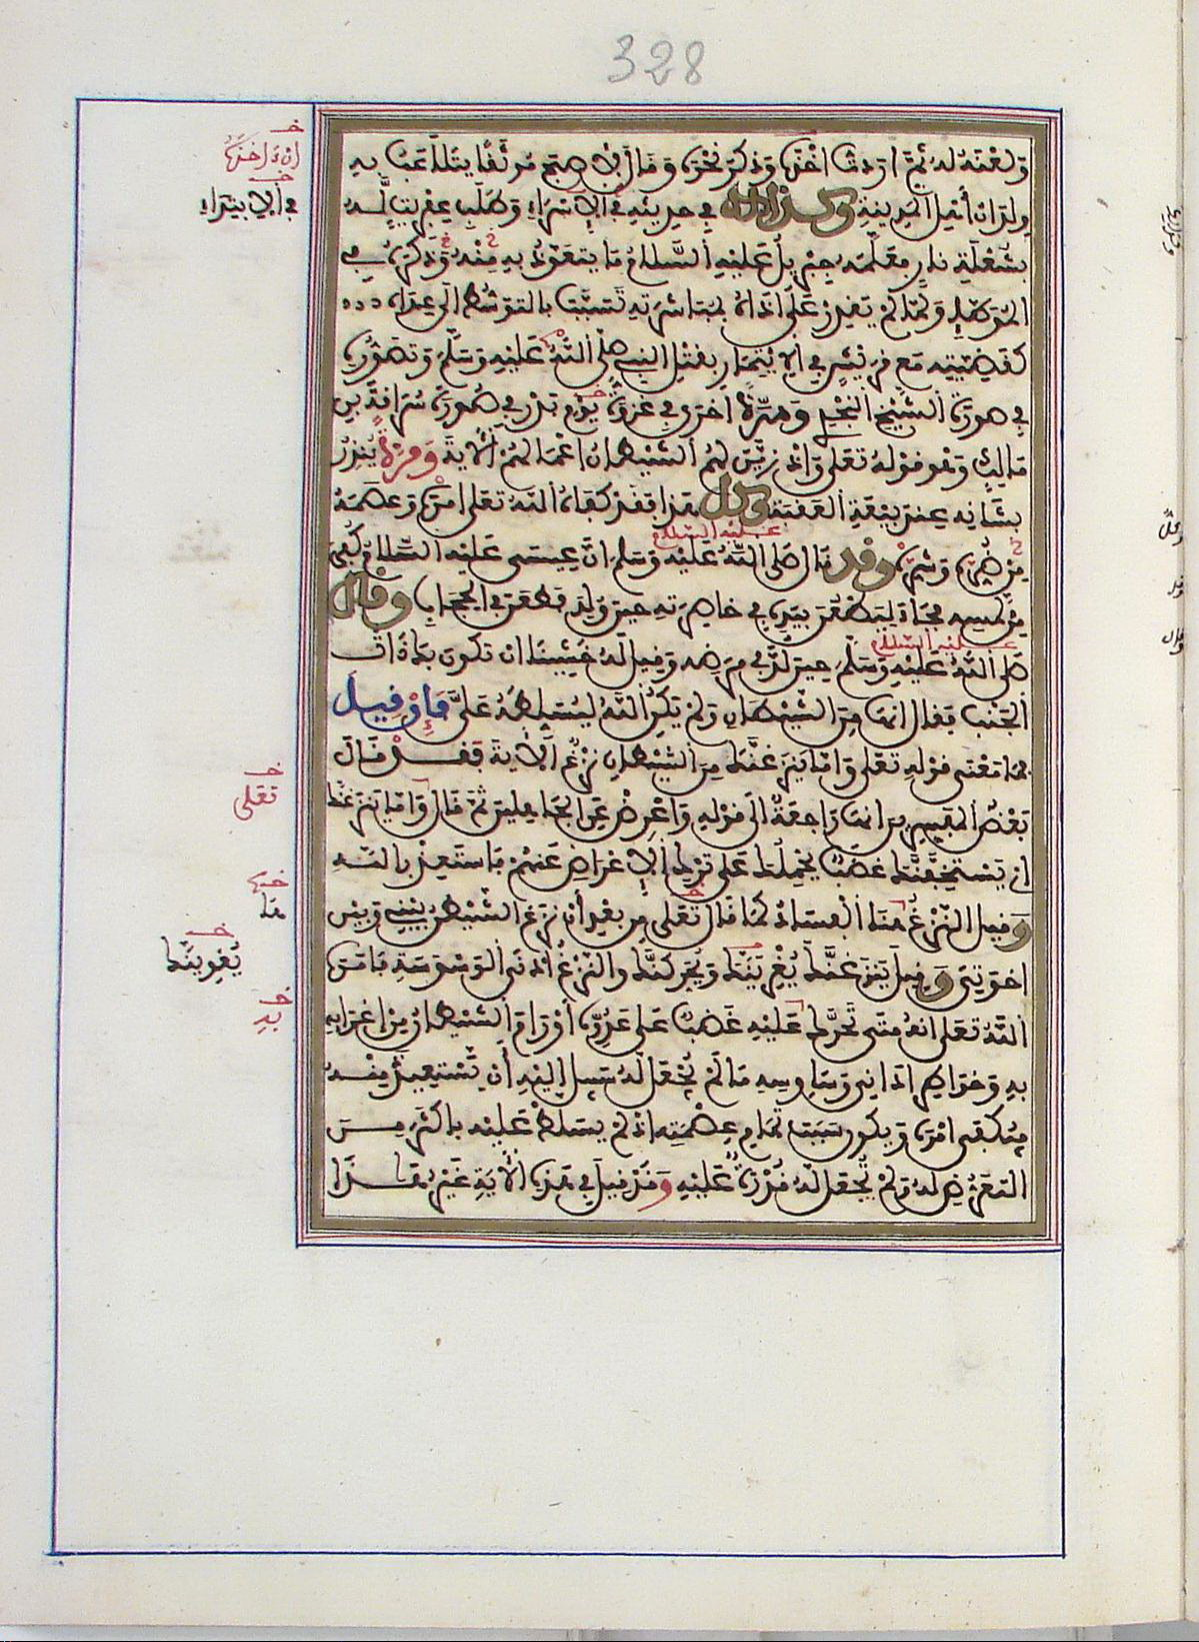 328
وَلَعْنَهُ لَهُ ثُمَّ أَرَدْتُ أَخْذَهُ وَذَكَرَ نَحْوَهُ وَقَالَ لَأَصْبَحَ مُوثَقًا يَتَلَاعَبُ بِهِ
وِلْدَانُ أَهْلِ الْمَدِينَةِ وَكَذَلِكَ فِي حَدِيثِهِ فِي الْإِسْرَاءِ وَطَلَبِ عِفْرِيتٍ لَهُ
بِشُعْلَةِ نَارٍ فَعَلَّمَهُ جِبْرِيلُ عَلَيْهِ السَّلَامُ مَا يَتَعَوَّذُ بِهِ مِنْهُ وَذَكَرَهُ فِي
الْمُوَطَّإِ وَلَمَّا لَمْ يَقْدِرْ عَلَى أَذَاهُ بِمُبَاشَرَتِهِ تَسَبَّبَ بِالتَّوَسُّطِ إِلَى عِدَاهُ
كَقَضِيَّتِهِ مَعَ قُرَيْشٍ فِي الِايْتِمَارِ بِقَتْلِ النَّبِيِّ صَلَّى اللَّهُ عَلَيْهِ وَسَلَّمَ وَتَصَوُّرِهِ
فِي صُورَةِ الشَّيْخِ النَّجْدِيِّ وَمَرَّةً أُخْرَى فِي غَزْوَةِ يَوْمِ بَدْرٍ فِي صُورَةِ سُرَاقَةَ بْنِ
مَالِكٍ وَهُوَ قَوْلُهُ تَعَلَى وَإِذْ زَيَّنَ لَهُمُ الشَّيْطَانُ أَعْمَالَهُمْ الْآيَةَ وَمَرَّةً يُنْذِرُ
بِشَأْنِهِ عِنْدَ بَيْعَةِ الْعَقَبَةِ وَكُلُّ هَذَا فَقَدْ كَفَاهُ اللَّهُ تَعَلَى أَمْرَهُ وَعَصَمَهُ
عَلَيْهِ السَّلَامُ
مِنْ ضُرِّهِ وَشَرِّهِ وَقَدْ قَالَ صَلَّى اللَّهُ عَلَيْهِ وَسَلَّمَ إِنَّ عِيسَى عَلَيْهِ السَّلَامُ كُفِيَ
مِنْ لَمْسِهِ فَجَاءَ لِيَطْعُنَ بِيَدِهِ فِي خَاصِرَتِهِ حِينَ وُلِدَ فَطَعَنَ فِي الْحِجَابِ وَقَالَ
عَلَيْهِ السَّلَامُ
صَلَّى اللَّهُ عَلَيْهِ وَسَلَّمَ حِينَ لُدَّ فِي مَرَضِهِ وَقِيلَ لَهُ خَشِينَا أَنْ تَكُونَ بِكَ ذَاتُ
الْجَنْبِ فَقَالَ إِنَّهَا مِنَ الشَّيْطَانِ وَلَمْ يَكُنِ اللَّهُ لِيُسَلِّطَهُ عَلَيَّ فَإِنْ قِيلَ
فَمَا مَعْنَى قَوْلِهِ تَعَلَى وَإِمَّا يَنْزَغَنَّكَ مِنَ الشَّيْطَانِ نَزْغٌ الْآيَةَ فَقَدْ قَالَ
بَعْضُ الْمُفَسِّرِينَ إِنَّهَا رَاجِعَةٌ إِلَى قَوْلِهِ وَأَعْرِضْ عَنِ الْجَاهِلِينَ ثُمَّ قَالَ وَإِمَّا يَنْزَغَنَّكَ
أَيْ يَسْتَخِفَّنَّكَ غَضَبٌ يَحْمِلُكَ عَلَى تَرْكِ الْإِعْرَاضِ عَنْهُمْ فَاسْتَعِذْ بِاللَّهِ
وَقِيلَ النَّزْغُ هُنَا الْفَسَادُ كَمَا قَالَ تَعَلَى مِنْ بَعْدِ أَنْ نَزَغَ الشَّيْطَنُ بَيْنِي وَبَيْنَ
إِخْوَتِي وَقِيلَ يَنْزَغَنَّكَ يُغْرِيَنَّكَ وَيُحَرِّكَنَّكَ وَالنَّزْغُ أَدْنَى الْوَسْوَسَةِ فَأَمَرَهُ
اللَّهُ تَعَلَى أَنَّهُ مَتَى تَحَرَّكَ عَلَيْهِ غَضَبٌ عَلَى عَدُوِّهِ أَوْ رَامَ الشَّيْطَانُ مِنْ إِغْرَائِهِ
بِهِ وَخَوَاطِرِ أَدَانِي وَسَاوِسِهِ مَا لَمْ يُجْعَلْ لَهُ سَبِيلٌ إِلَيْهِ أَنْ يَسْتَعِيذَ مِنْهُ
فَيُكْفَى أَمْرَهُ وَيَكُونُ سَبَبَ تَمَامِ عِصْمَتِهِ إِذْ لَمْ يُسَلَّطْ عَلَيْهِ بِأَكْثَرَ مِنَ
التَّعَرُّضِ لَهُ وَلَمْ يُجْعَلْ لَهُ قُدْرَةٌ عَلَيْهِ وَقَدْ قِيلَ فِي هَذِهِ الْآيَةِ غَيْرُ هَذَا
فِي الِابْتِدَاءِ
تَعَلَى
هُنَا
يُغْوِيَنَّكَ
بِهِ